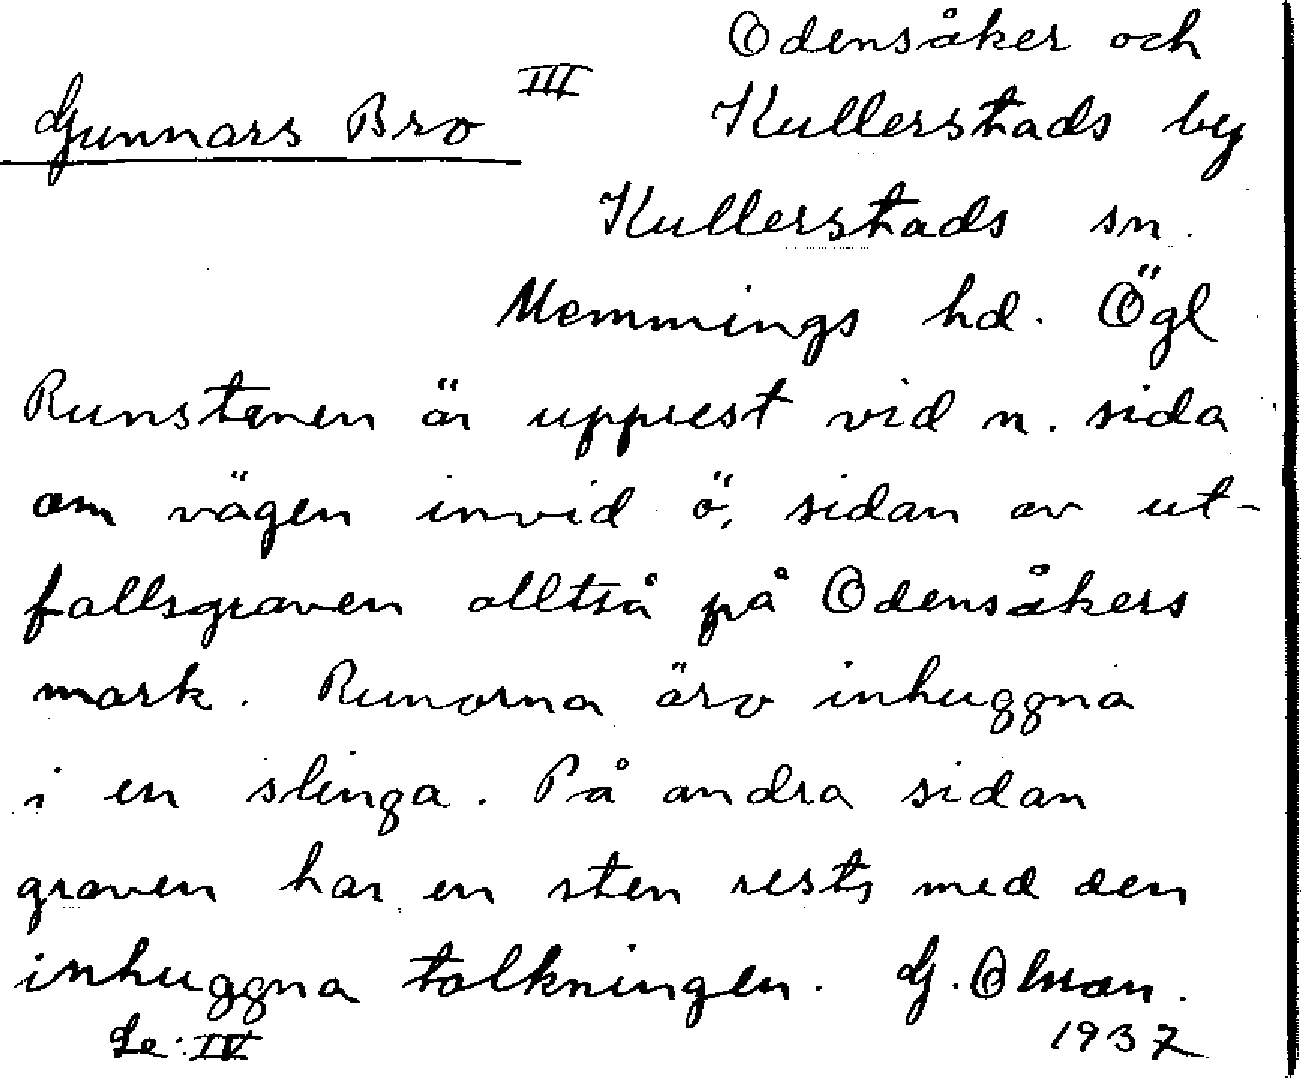 Odensåker och
Gunnars Bro III
Kullerstads by
Kullerstads sn.
Memmings hd. Ögl
Runstenen är upprest vid n. sida
om vägen invid ö, sidan av ut-
fallsgraven alltså på Odensåkers
mark. Runorna äro inhuggna
i en slinga. På andra sidan
graven har en sten rests med den
inhuggna tolkningen. G.
Se: IV 1937